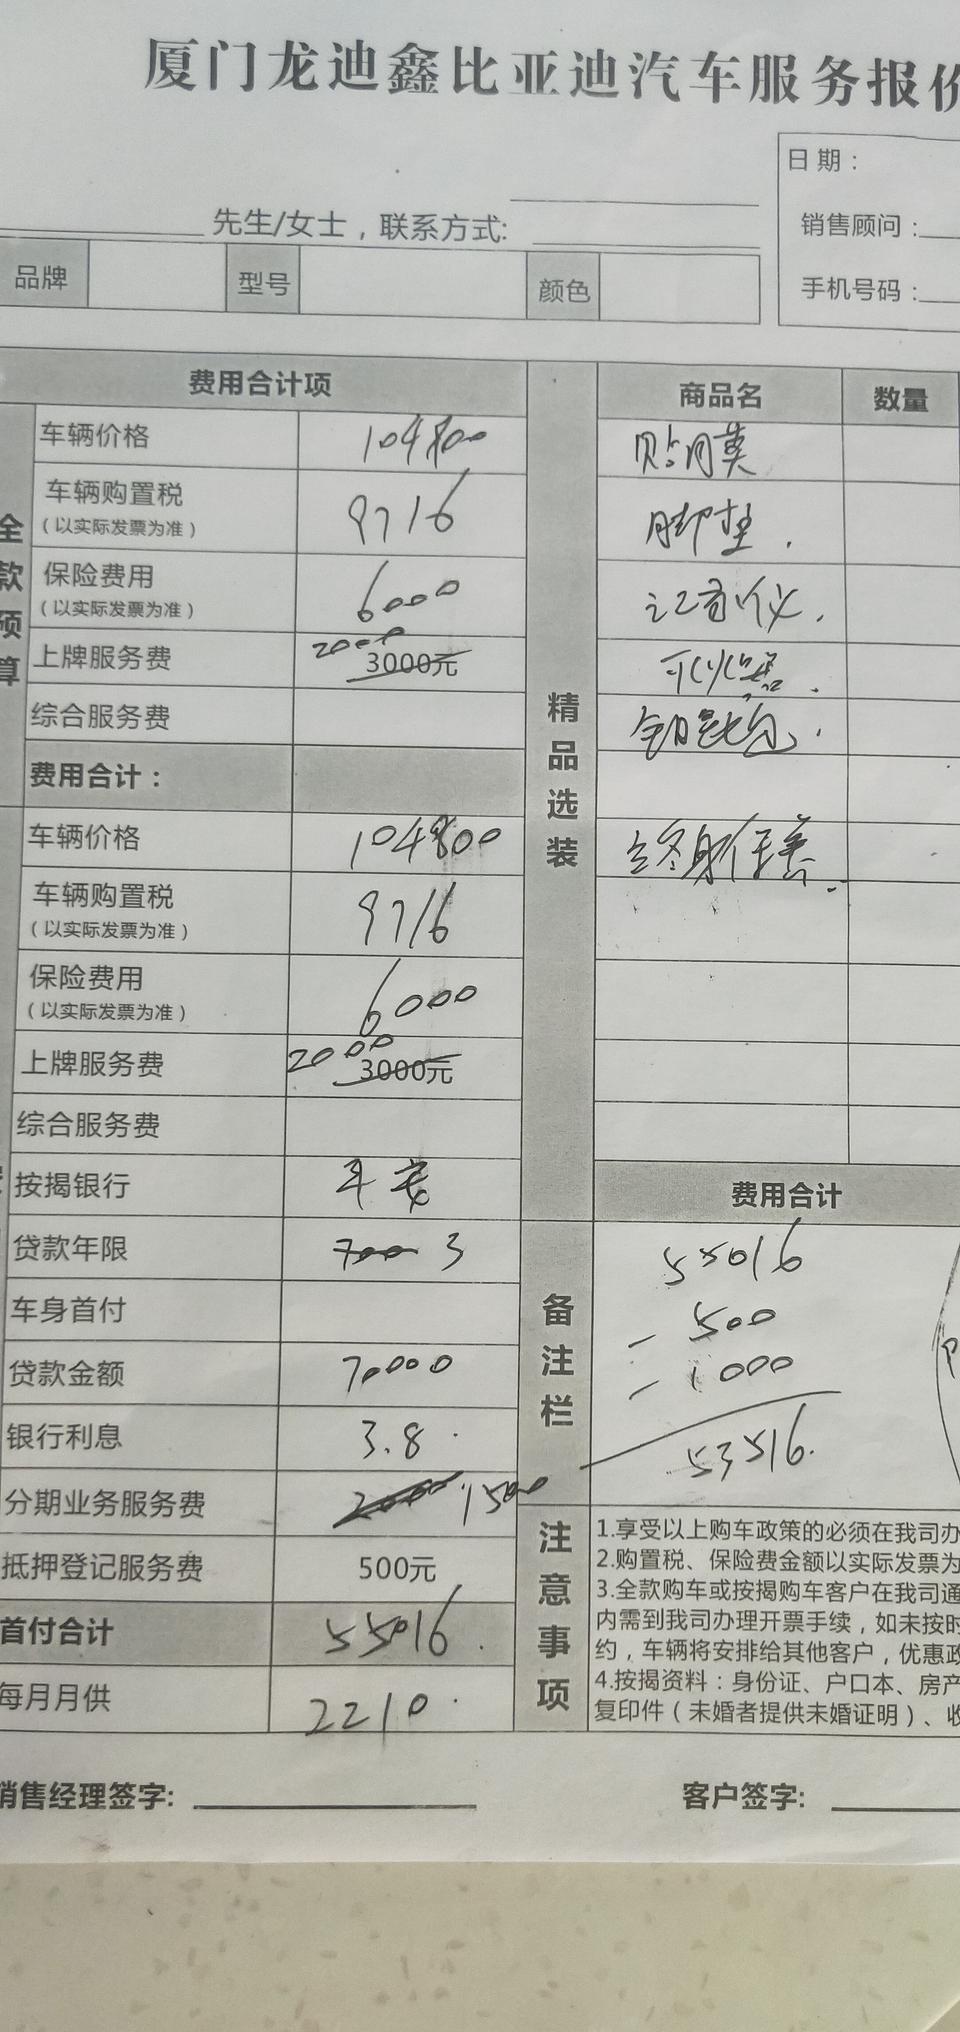 厦门龙迪鑫比亚迪汽车服务报价
日期：
先生/女士，联系方式:
销售顾问：
手机号码：
品牌 型号 颜色
费用合计项
全款预算
车辆价格 104800
车辆购置税 9716
（以实际发票为准）
保险费用 6000
（以实际发票为准）
上牌服务费 2000 3000元
综合服务费
费用合计：
车辆价格 104800
车辆购置税 9716
（以实际发票为准）
保险费用 6000
（以实际发票为准）
上牌服务费 2000 3000元
综合服务费
按揭银行 平安
贷款年限 3
车身首付
贷款金额 70000
银行利息 3.8
分期业务服务费 2000 1500
抵押登记服务费 500元
首付合计 55016
每月月供 2210
精品选装
商品名 数量
贴膜
脚垫
记录仪
灭火器
钥匙包
终身保养
费用合计
备注栏
55016
- 500
- 1000
53516
注意事项
1.享受以上购车政策的必须在我司办
2.购置税、保险费金额以实际发票为
3.全款购车或按揭购车客户在我司通
内需到我司办理开票手续，如未按时
约，车辆将安排给其他客户，优惠政
4.按揭资料：身份证、户口本、房产
复印件（未婚者提供未婚证明）、收
销售经理签字:
客户签字: